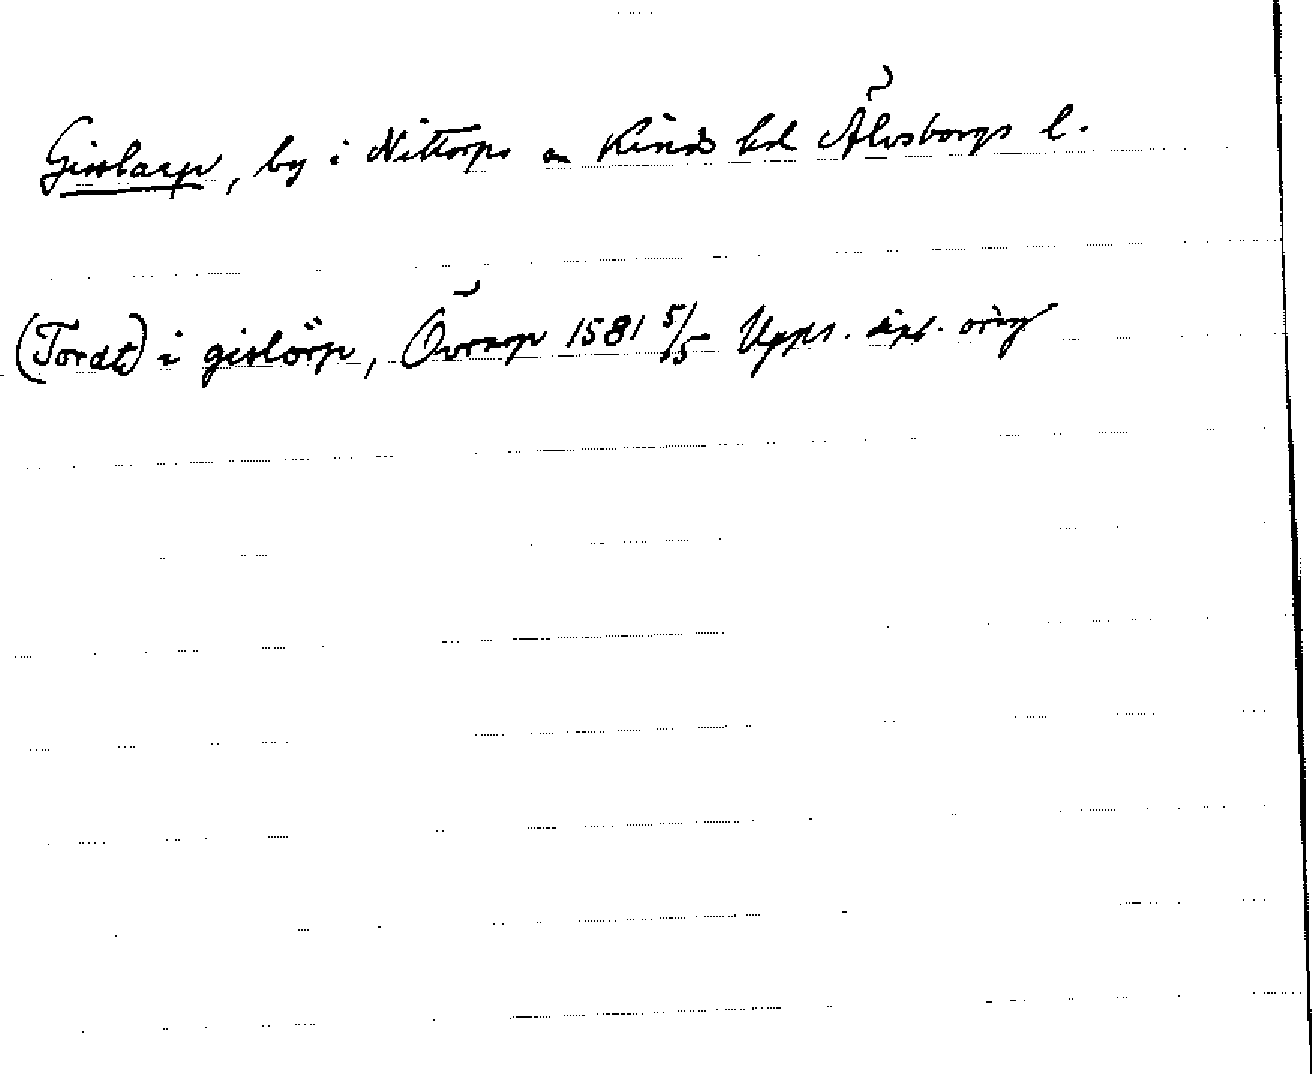 Gisslarp, by i Nittorps sn Kinds hd Älvsborgs l.
(Tordt) i gislörp, Övrarp 1581 5/5 Upps. dipl. orig